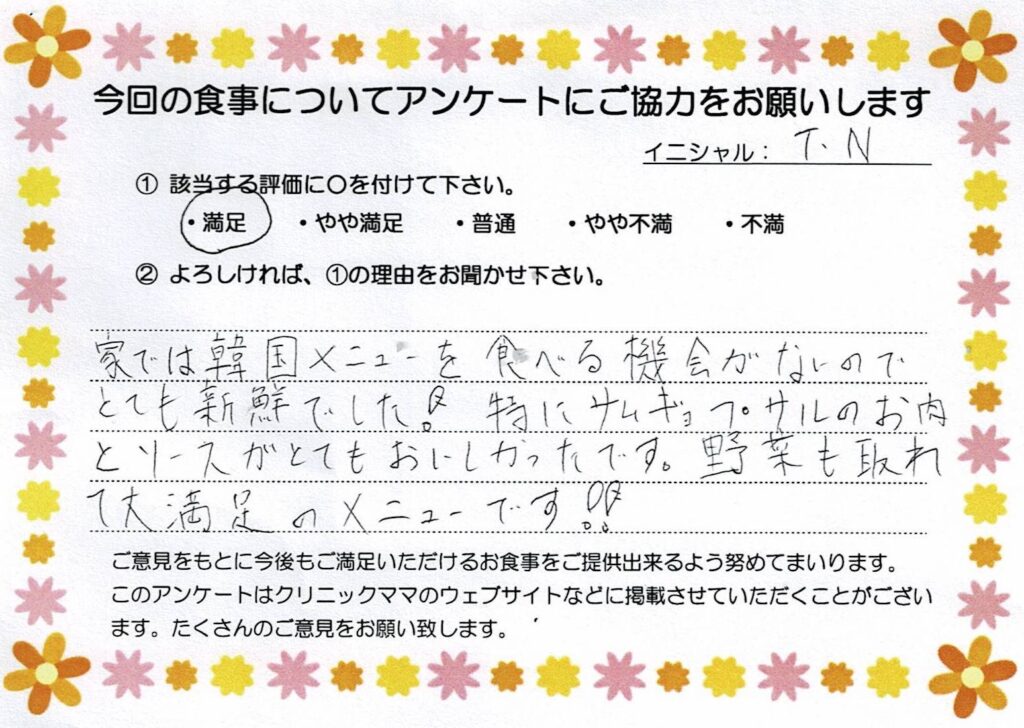 今回の食事についてアンケートにご協力をお願いします
イニシャル： T.N
① 該当する評価に〇を付けて下さい。
・満足 ・やや満足 ・普通 ・やや不満 ・不満
② よろしければ、①の理由をお聞かせ下さい。
家では韓国メニューを食べる機会がないので
とても新鮮でした! 特にサムギョプサルのお肉
とソースがとてもおいしかったです。野菜も取れ
て大満足のメニューです!!
ご意見をもとに今後もご満足いただけるお食事をご提供出来るよう努めてまいります。
このアンケートはクリニックママのウェブサイトなどに掲載させていただくことがござい
ます。たくさんのご意見をお願い致します。